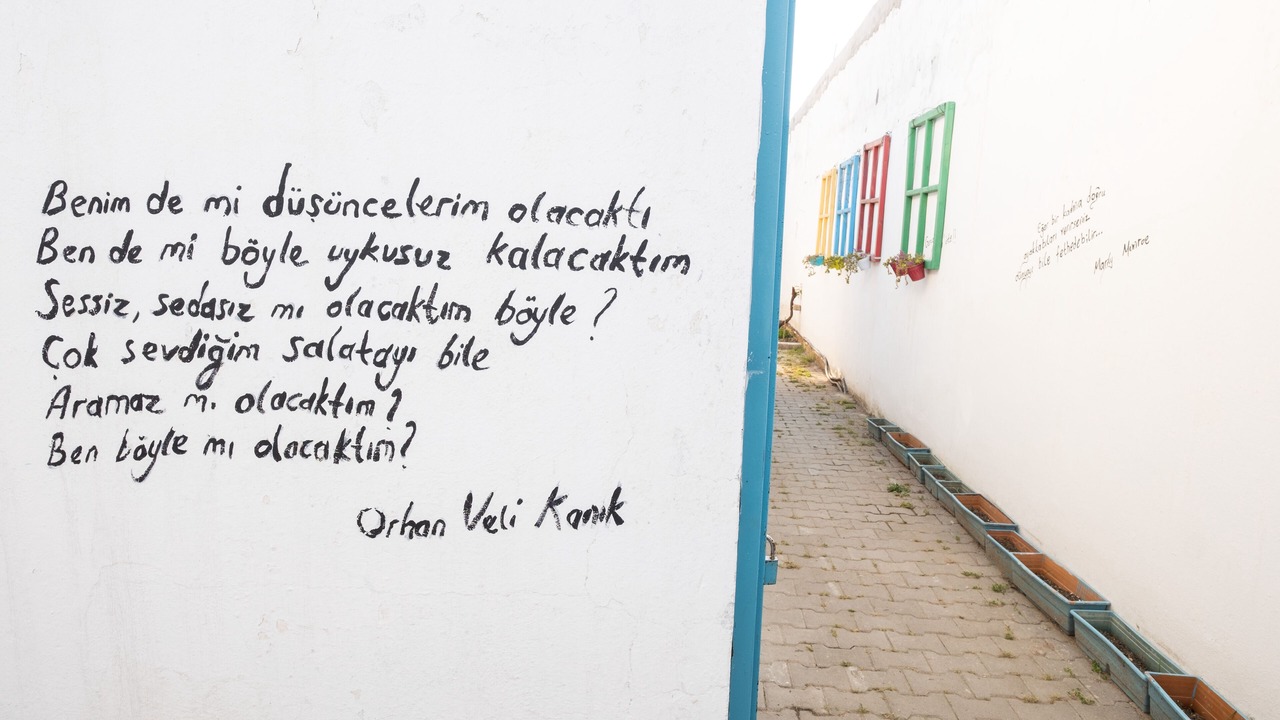 Benim de mi düşüncelerim olacaktı
Ben de mi böyle uykusuz kalacaktım
Sessiz, sedasız mı olacaktım böyle?
Çok sevdiğim salatayı bile
Aramaz mı olacaktım?
Ben böyle mı olacaktım?
Orhan Veli Kanık
Eğer bir kadına doğru
ayakkabıları verirseniz
dünyayı bile fethedebilir...
Monroe